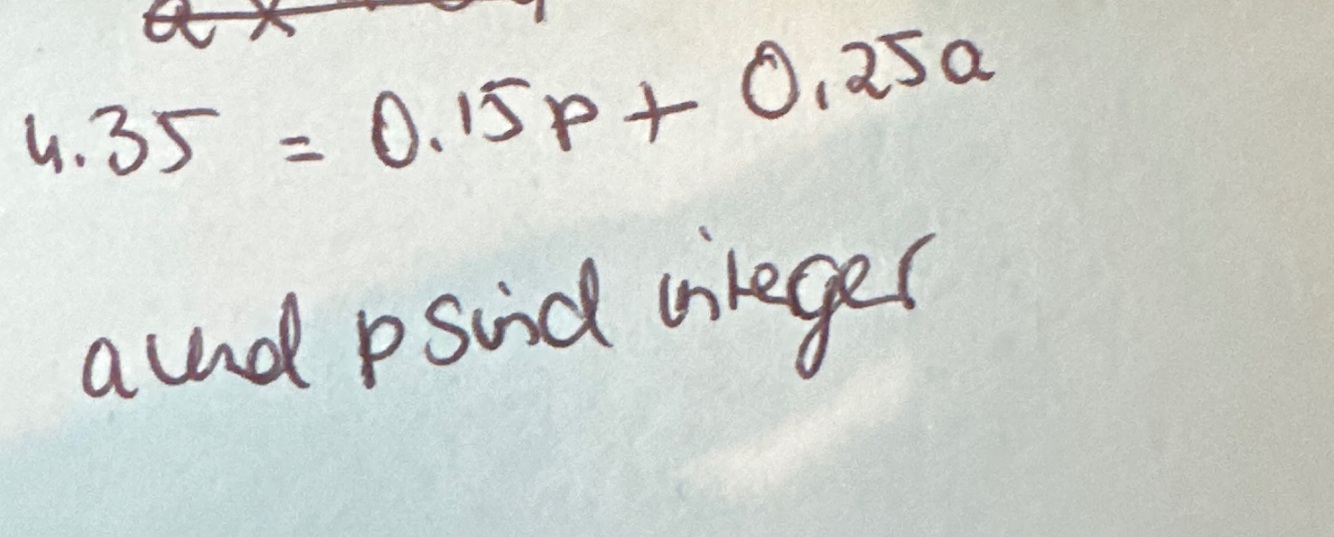 4.35 = 0.15p + 0,25a
a und p sind integer